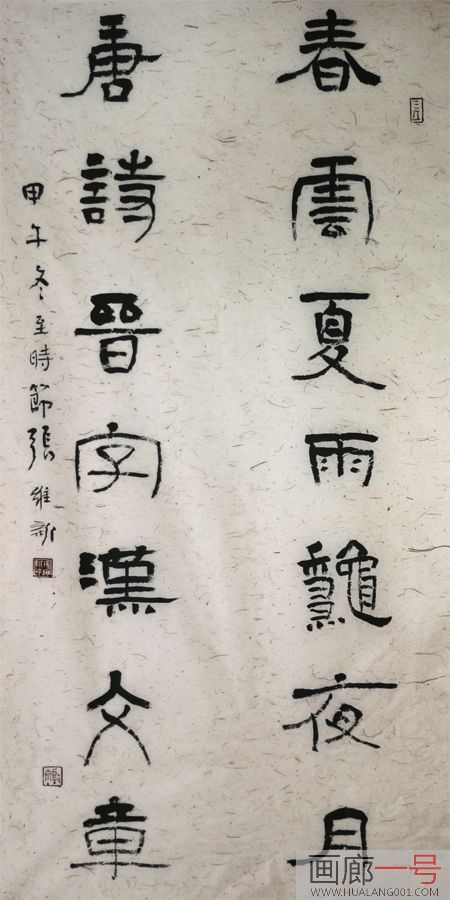 春雲夏雨龝夜月
唐詩晉字漢文章
甲午冬至時節張維新
画廊一号
WWW.HUALANG001.COM